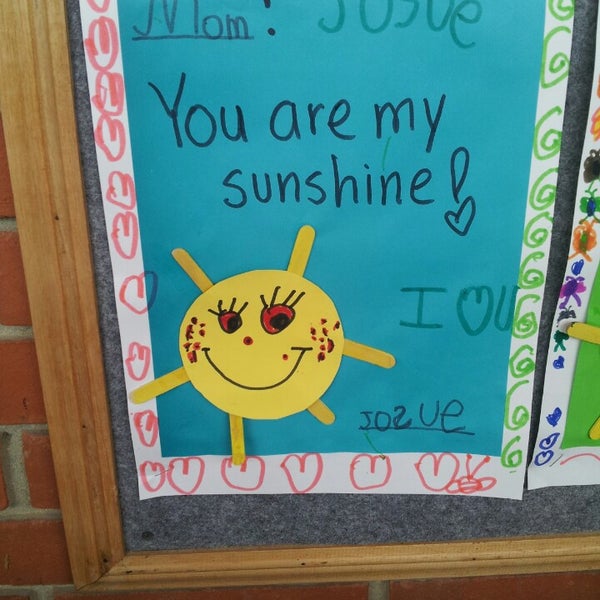 Mom! Josue
You are my
sunshine!
I ♡ U
Josue